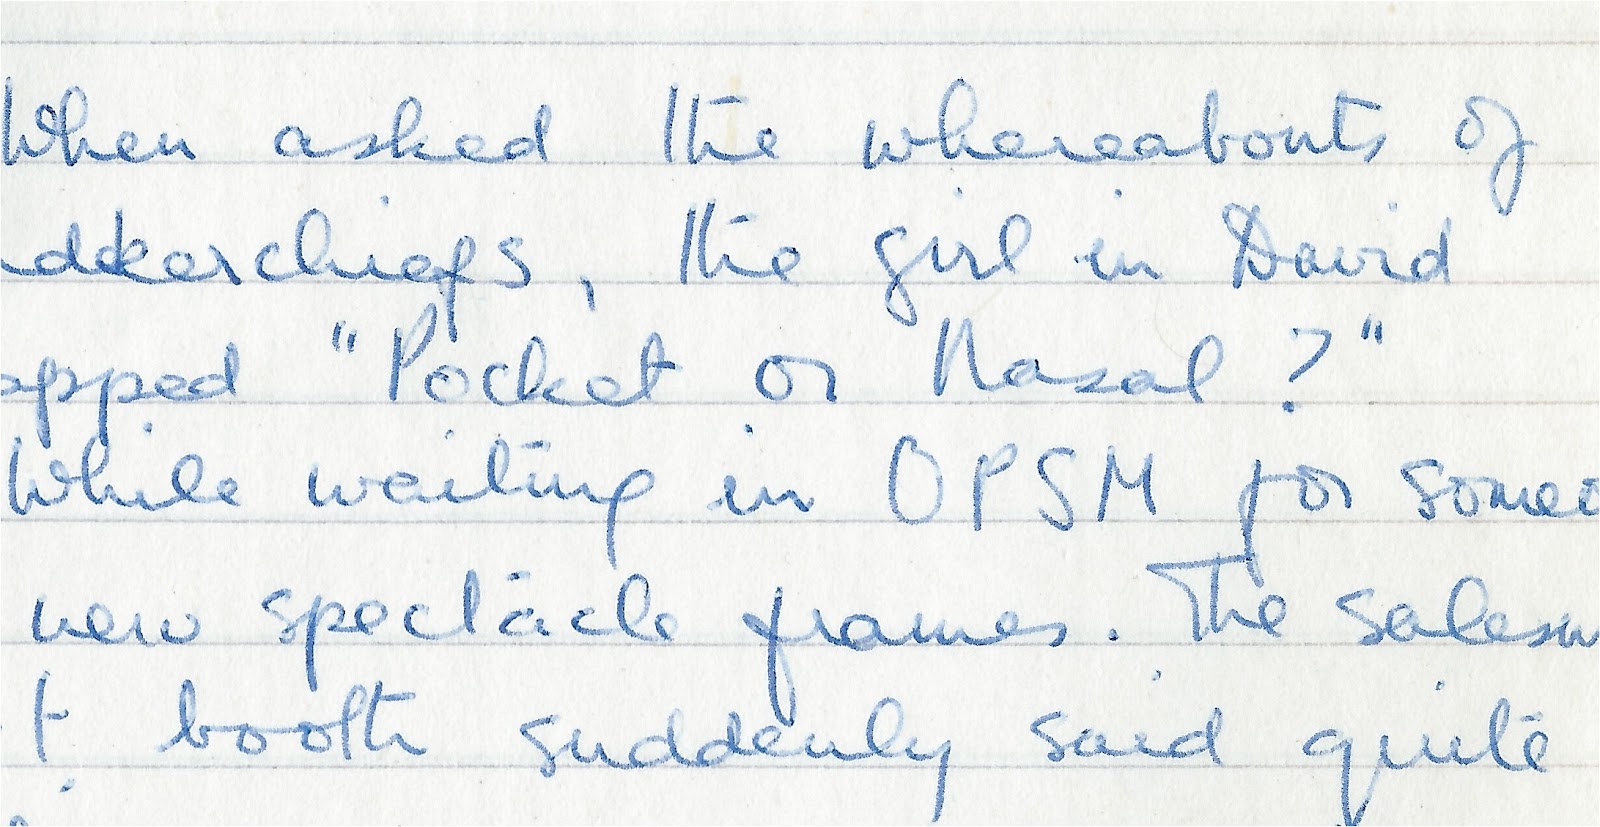 When asked the whereabouts of
ndkerchiefs, the girl in David
apped "Pocket or Nasal?"
While waiting in OPSM for someo
new spectacle frames. The salesw
t booth suddenly said quite